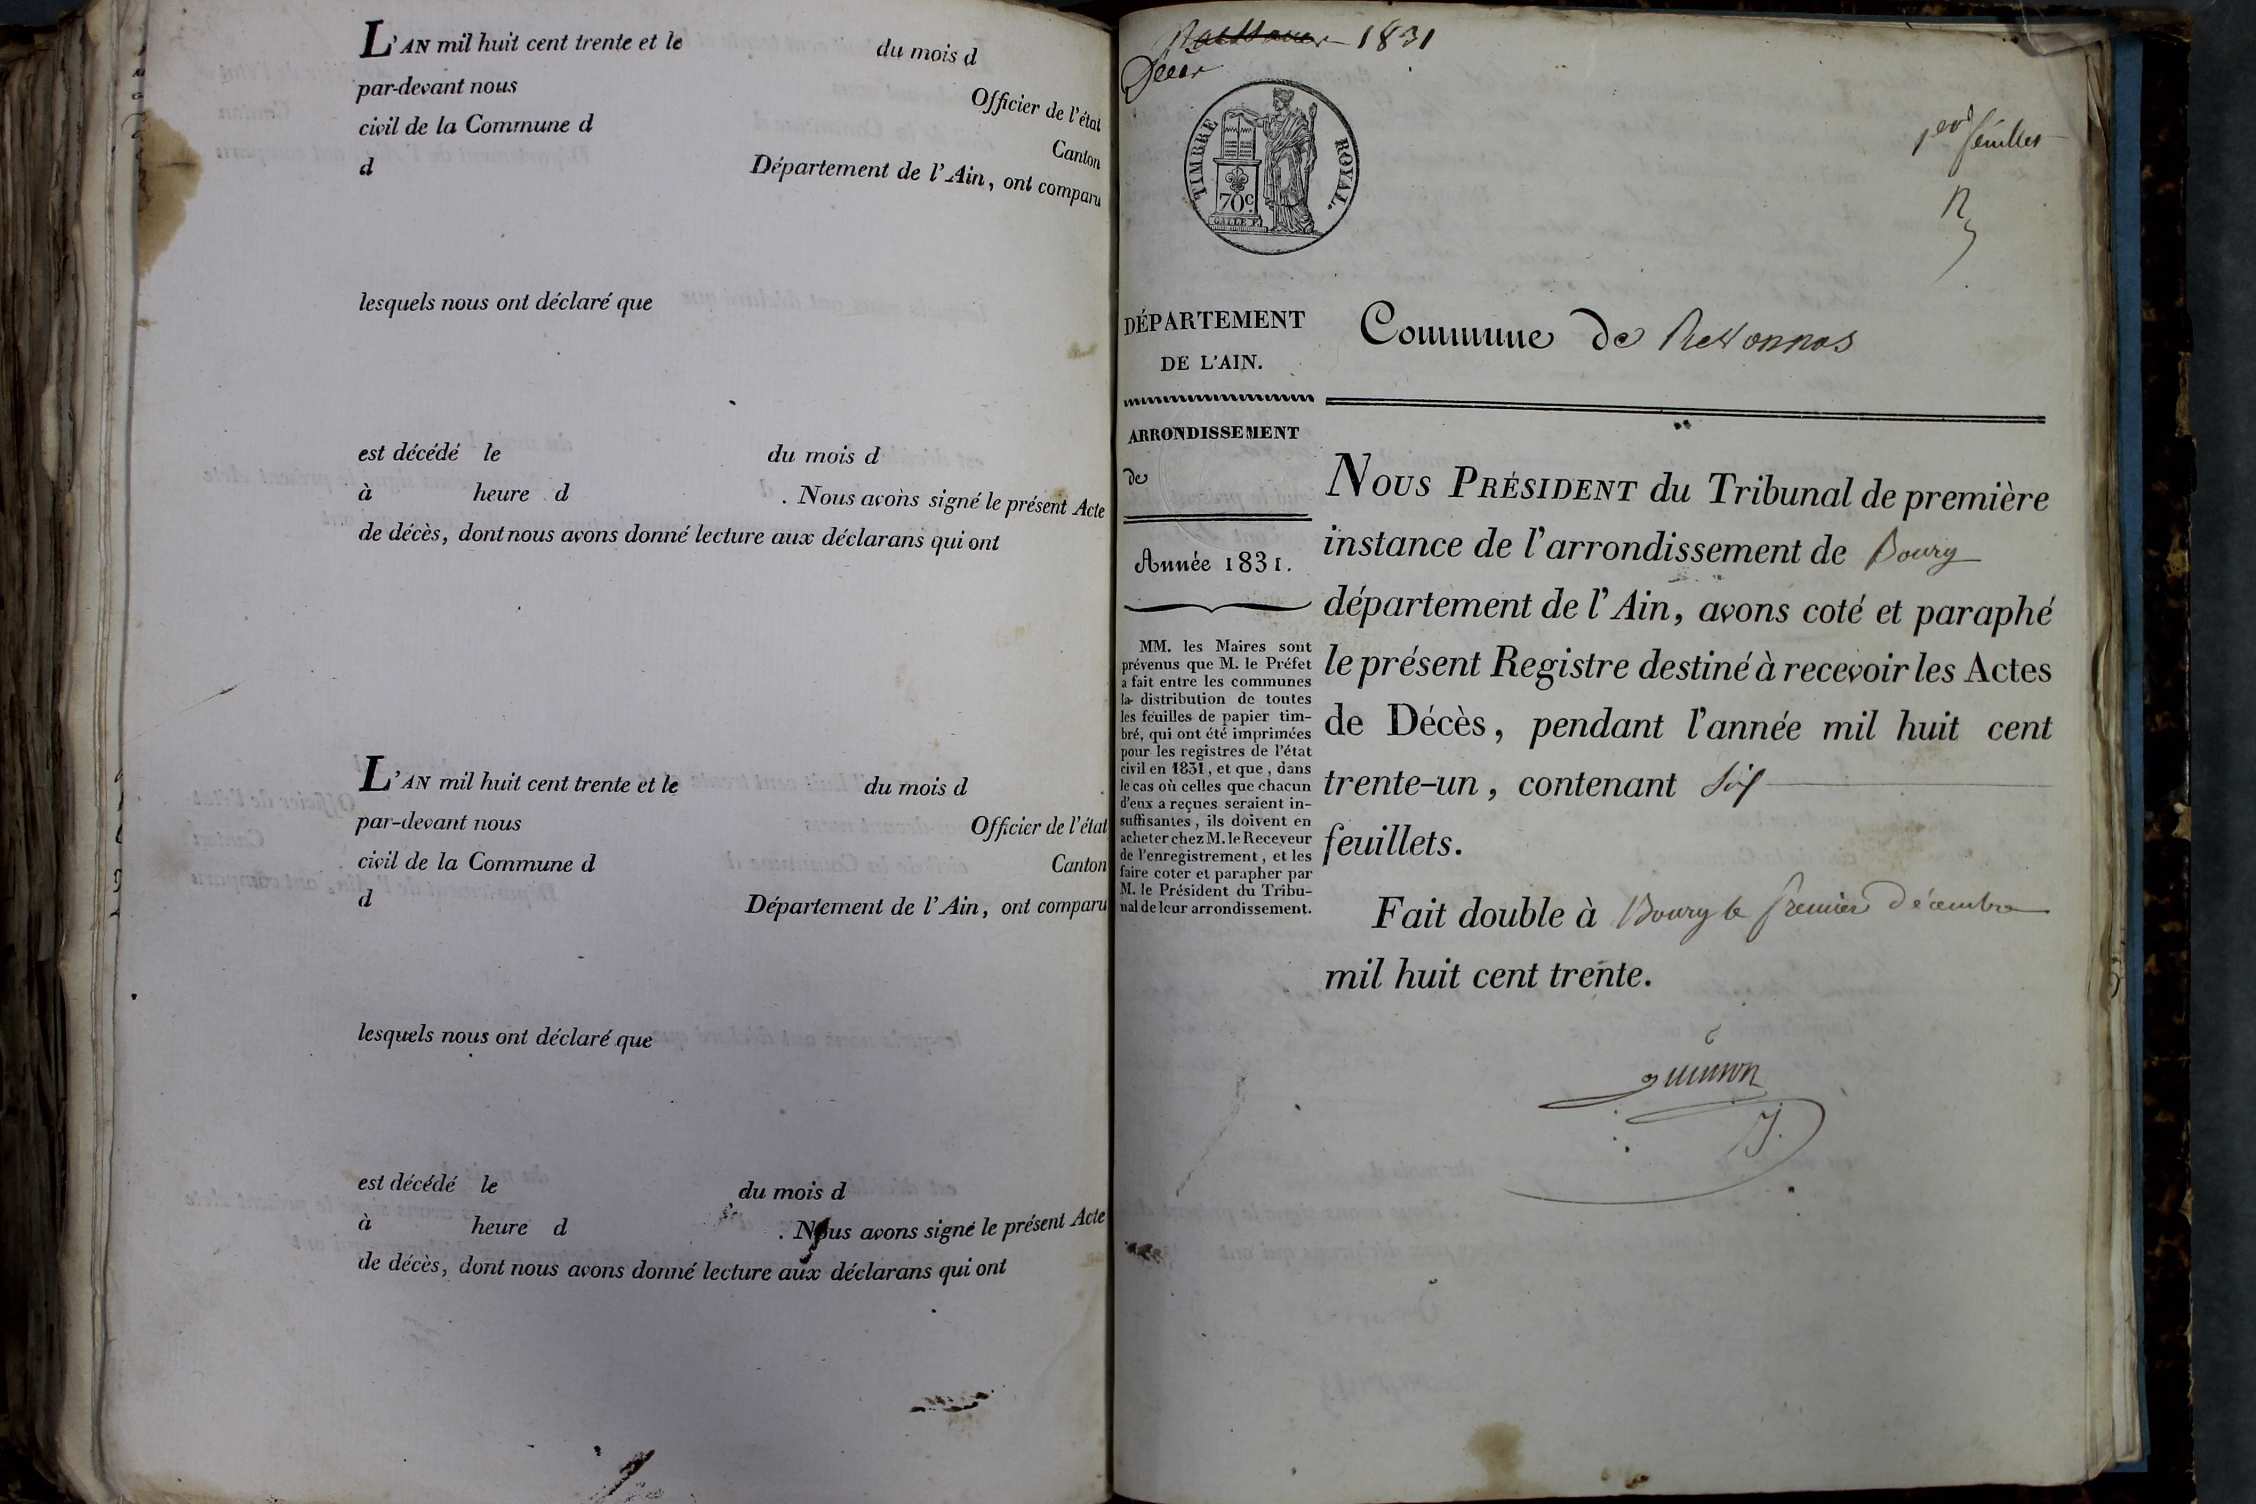 L'AN mil huit cent trente et le du mois d
par-devant nous Officier de l'état
civil de la Commune d Canton
d Département de l'Ain, ont comparu
lesquels nous ont déclaré que
est décédé le du mois d
à heure d . Nous avons signé le présent Acte
de décès, dont nous avons donné lecture aux déclarans qui ont
L'AN mil huit cent trente et le du mois d
par-devant nous Officier de l'état
civil de la Commune d Canton
d Département de l'Ain, ont comparu
lesquels nous ont déclaré que
est décédé le du mois d
à heure d . Nous avons signé le présent Acte
de décès, dont nous avons donné lecture aux déclarans qui ont
1831
TIMBRE ROYAL.
70c.
GALLE F.
feuillet
DÉPARTEMENT
DE L'AIN.
ARRONDISSEMENT
de
Année 1831.
MM. les Maires sont
prévenus que M. le Préfet
a fait entre les communes
la distribution de toutes
les feuilles de papier tim-
bré, qui ont été imprimées
pour les registres de l'état
civil en 1831, et que, dans
le cas où celles que chacun
d'eux a reçues seraient in-
suffisantes, ils doivent en
acheter chez M. le Receveur
de l'enregistrement, et les
faire coter et parapher par
M. le Président du Tribu-
nal de leur arrondissement.
Commune de
NOUS PRÉSIDENT du Tribunal de première
instance de l'arrondissement de Bourg
département de l'Ain, avons coté et paraphé
le présent Registre destiné à recevoir les Actes
de Décès, pendant l'année mil huit cent
trente-un, contenant six
feuillets.
Fait double à Bourg le premier décembre
mil huit cent trente.